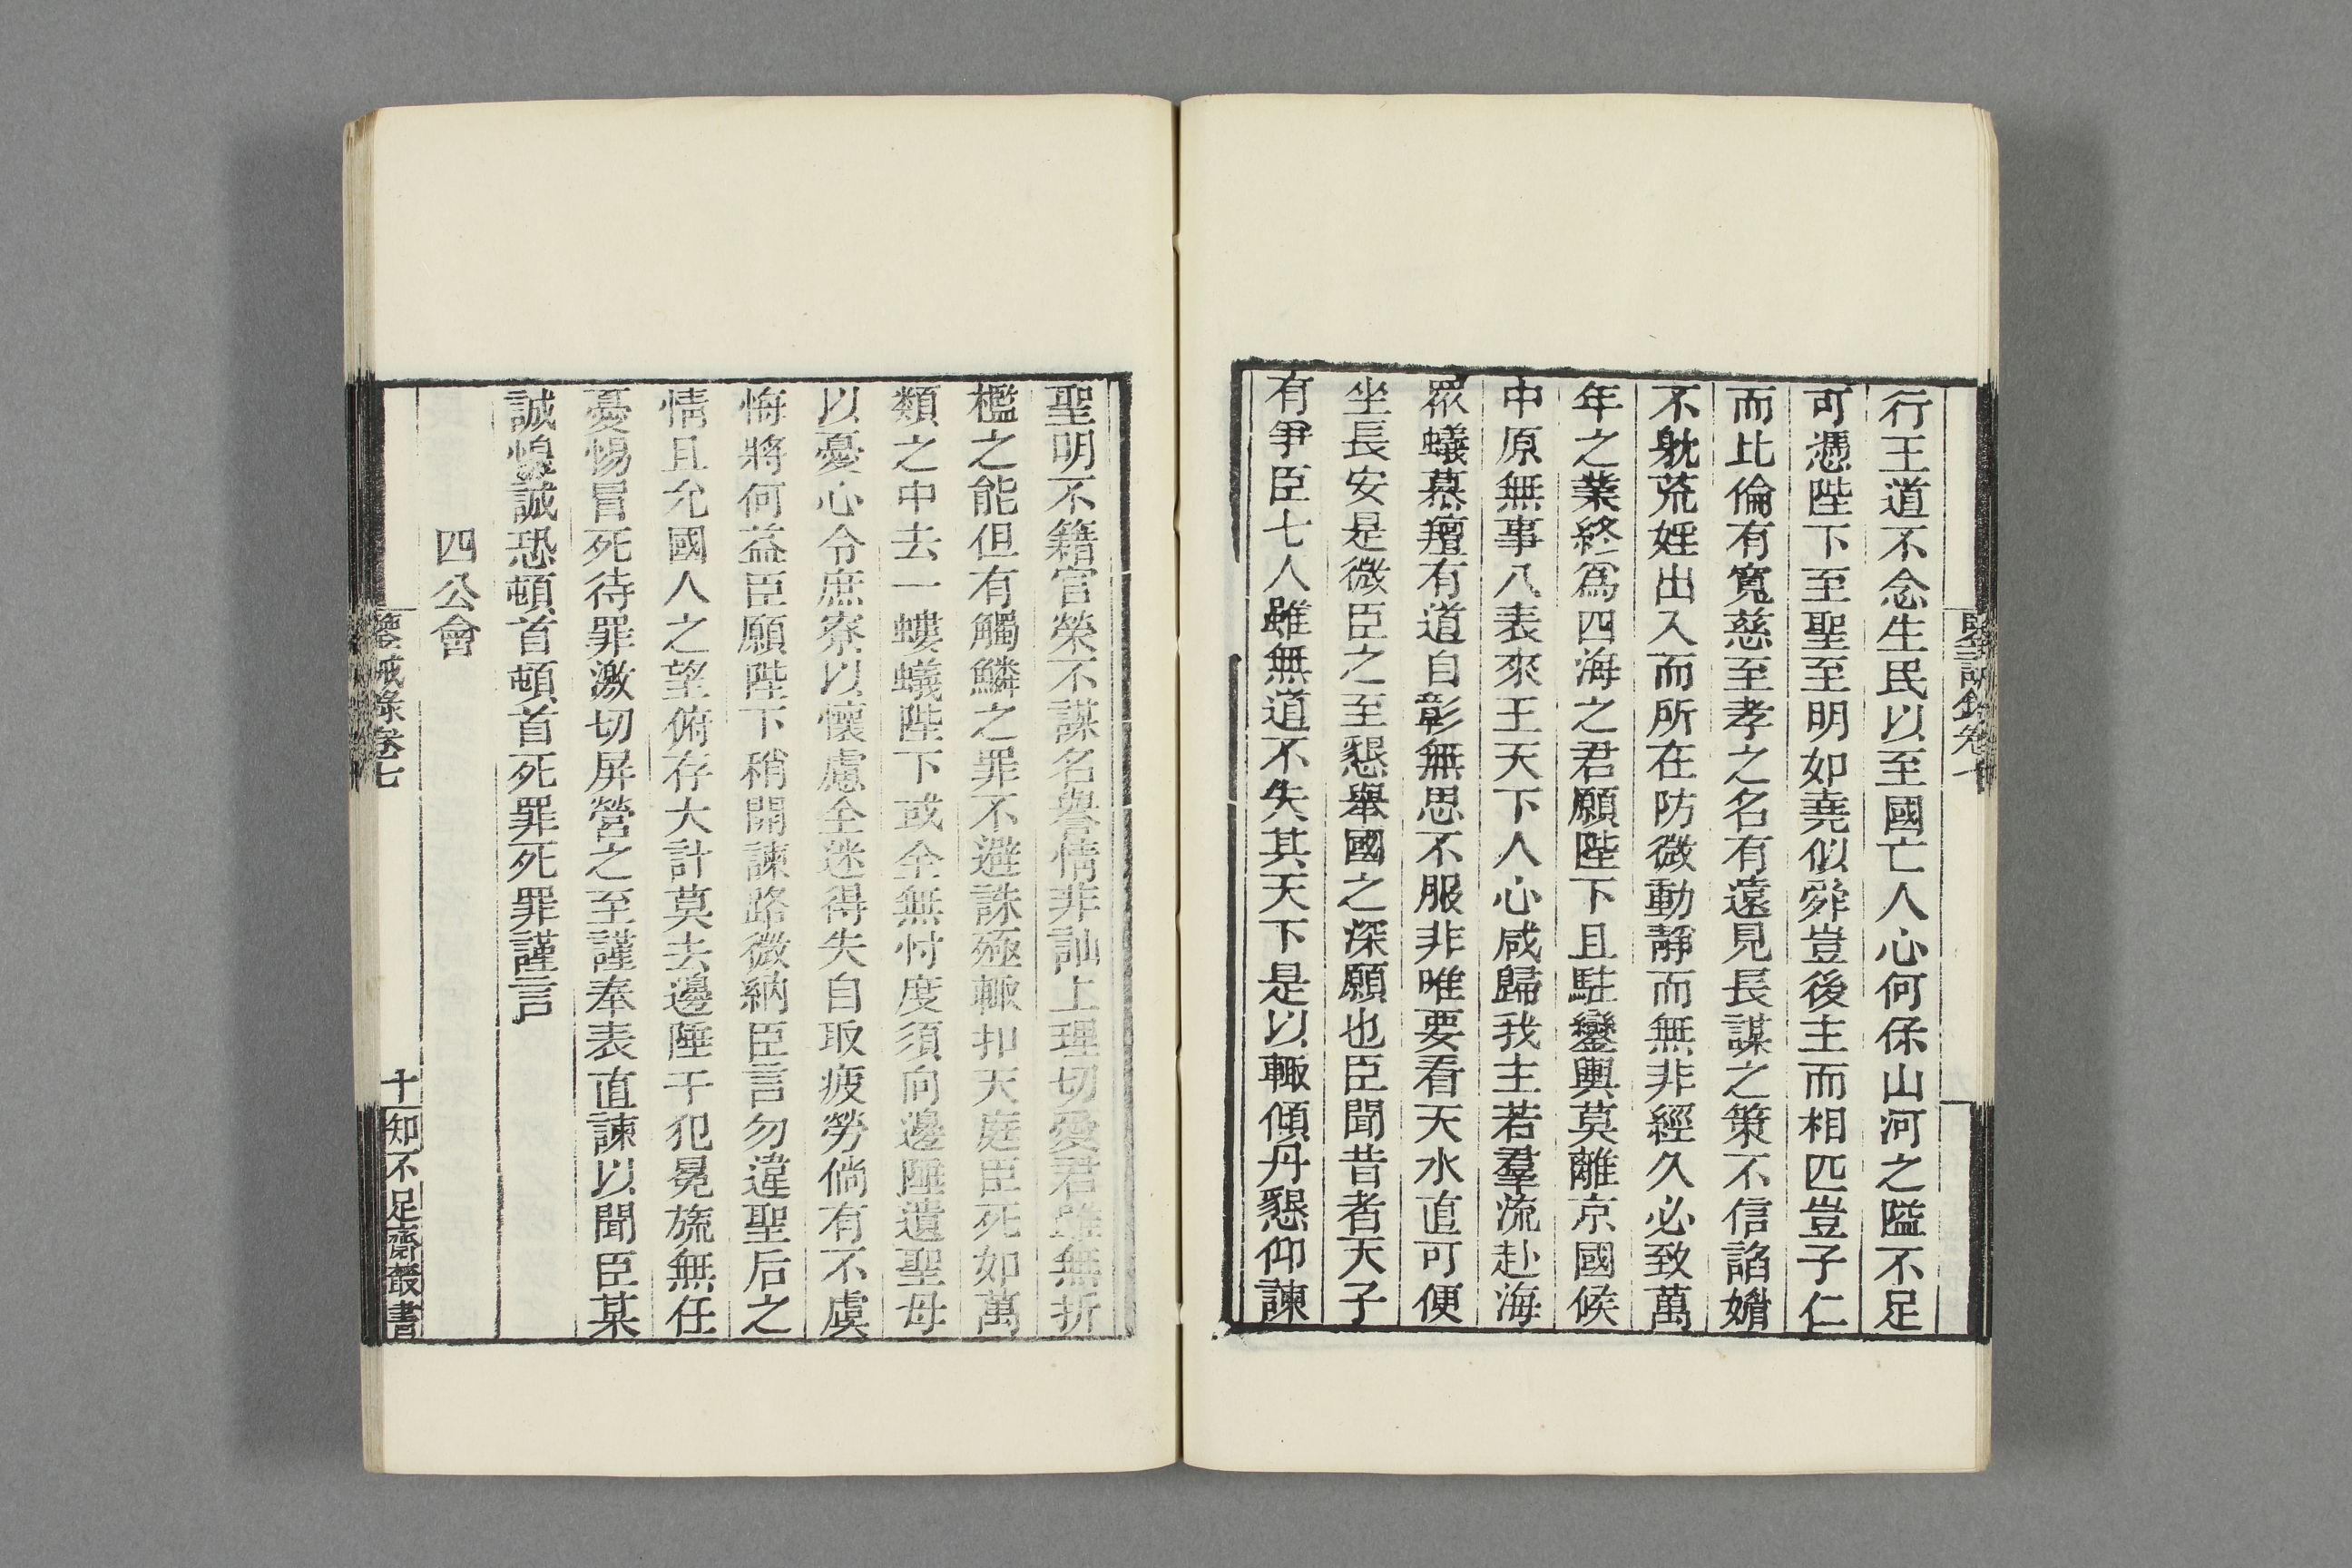 行王道不念生民以至國亡人心何保山河之隘不足
可憑陛下至聖至明如堯似舜豈後主而相匹豈子仁
而比倫有寬慈至孝之名有遠見長謀之策不信諂媚
不躭荒婬出入而所在防微動靜而無非經久必致萬
年之業終爲四海之君願陛下且駐鑾輿莫離京國候
中原無事八表來王天下人心咸歸我主若羣流赴海
眾蟻慕羶有道自彰無思不服非唯要看天水直可便
坐長安是微臣之至懇舉國之深願也臣聞昔者天子
有爭臣七人雖無道不失其天下是以輙傾丹懇仰諫
聖明不籍官榮不謀名譽情非訕上理切愛君雖無折
檻之能但有觸鱗之罪不避誅殛輙扣天庭臣死如萬
類之中去一螻蟻陛下或全無忖度須向邊陲遺聖母
以憂心令庶寮以懷慮全迷得失自取疲勞倘有不虞
悔將何益臣願陛下稍開諫路微納臣言勿違聖后之
情且允國人之望俯存大計莫去邊陲干犯冕旒無任
憂惕冒死待罪激切屏營之至謹奉表直諫以聞臣某
誠惶誠恐頓首頓首死罪死罪謹言
四公會
鑒戒錄卷七
十
知不足齋叢書